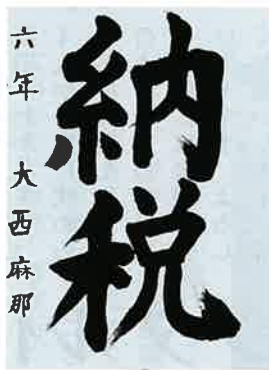 納税
六年 大西麻那